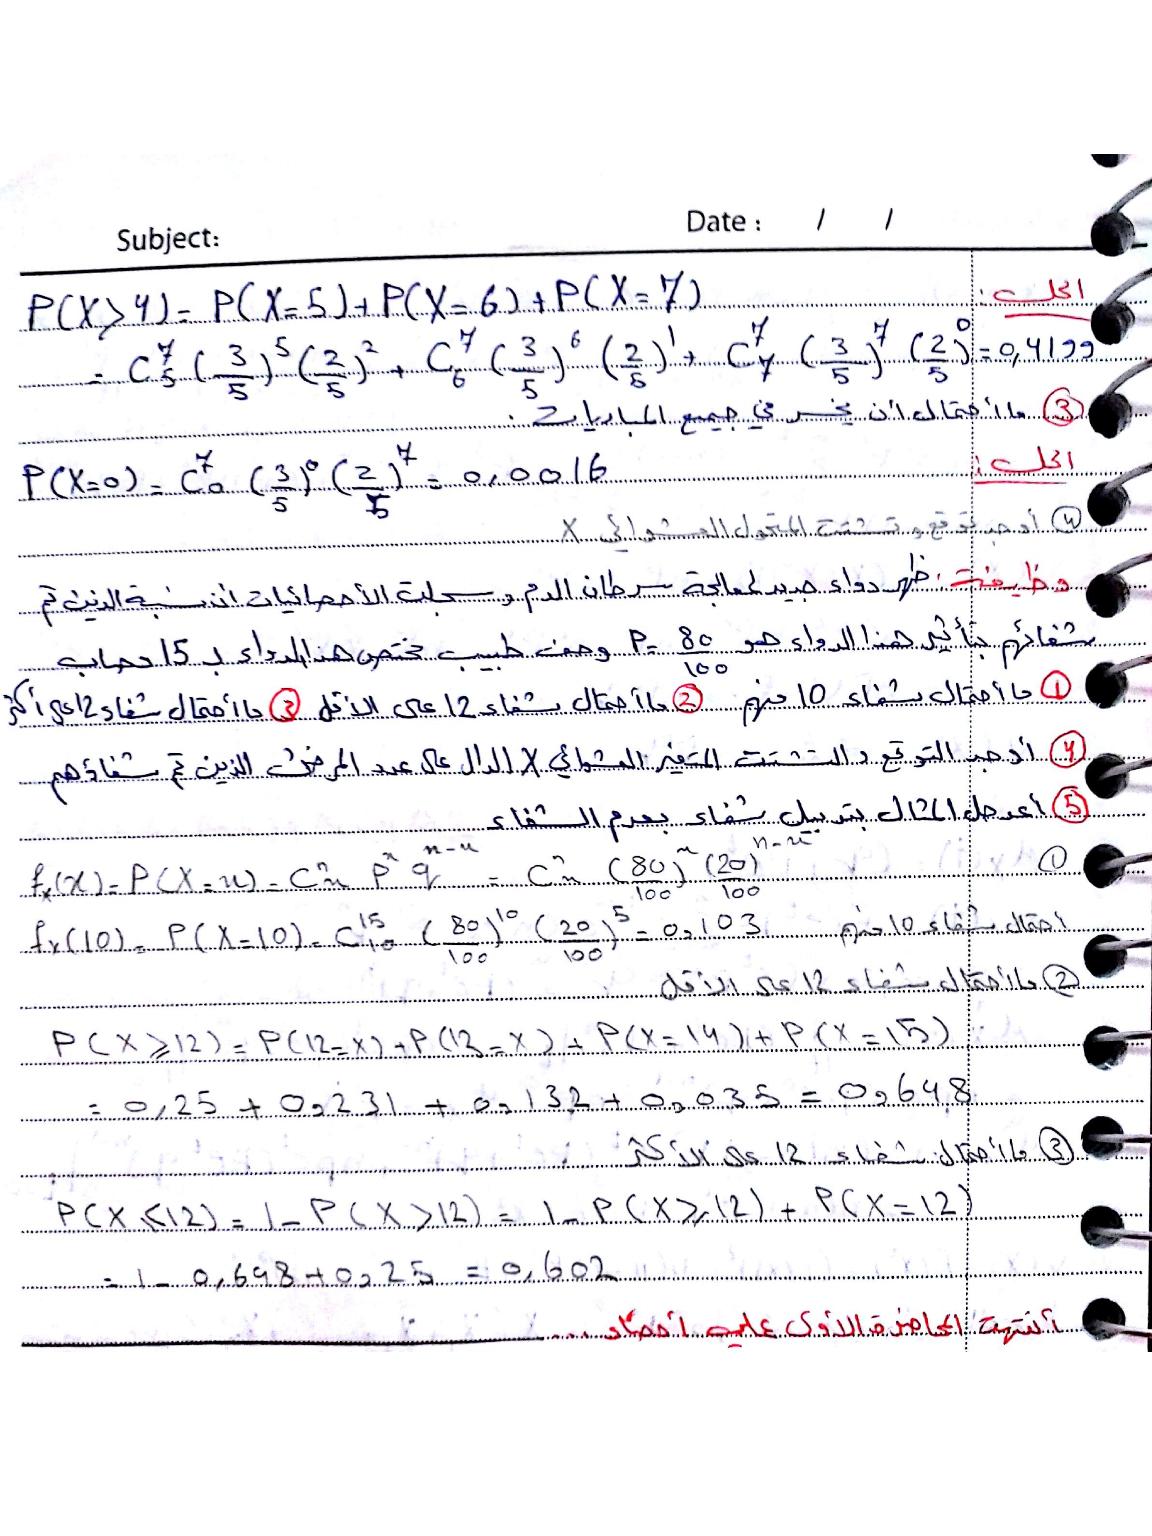 Subject:
Date : / /
الحل:
P(X>4) = P(X=5) + P(X=6) + P(X=7)
= C⁷₅ (3/5)⁵ (2/5)² + C⁷₆ (3/5)⁶ (2/5)¹ + C⁷₇ (3/5)⁷ (2/5)⁰ = 0,4199
③ ما احتمال ان يخسر في جميع المباريات.
الحل:
P(X=0) = C⁷₀ (3/5)⁰ (2/5)⁷ = 0,0016
④ أوجد توقع و تشتت المتحول العشوائي X
وظيفة: ظهر دواء جديد لمعالجة سرطان الدم وسجلت الأحصائيات ان نسبة الذين تم
شفائهم بتأثير هذا الدواء هو P= 80/100 وصف طبيب مختص هذا الدواء لـ 15 مصاب
① ما احتمال شفاء 10 منهم ② ما احتمال شفاء 12 على الاقل ③ ما احتمال شفاء 12 على أكثر
④ أوجد التوقع والتشتت للمتغير العشوائي X الدال على عدد المرضى الذين تم شفاؤهم
⑤ أعد حل المثال بتبديل شفاء بعدم الشفاء
①
fₓ(x) = P(X=x) = Cⁿₓ pˣ qⁿ⁻ˣ = Cⁿₓ (80/100)ˣ (20/100)ⁿ⁻ˣ
احتمال شفاء 10 منهم fₓ(10) = P(X=10) = C¹⁵₁₀ (80/100)¹⁰ (20/100)⁵ = 0,103
② ما احتمال شفاء 12 على الاقل
P(X⩾12) = P(12=X) + P(13=X) + P(X=14) + P(X=15)
= 0,25 + 0,231 + 0,132 + 0,035 = 0,648
③ ما احتمال شفاء 12 على الأكثر
P(X⩽12) = 1 - P(X>12) = 1 - P(X⩾12) + P(X=12)
= 1 - 0,648 + 0,25 = 0,602
أنتهت المحاضرة الاولى عملي احصاء ...